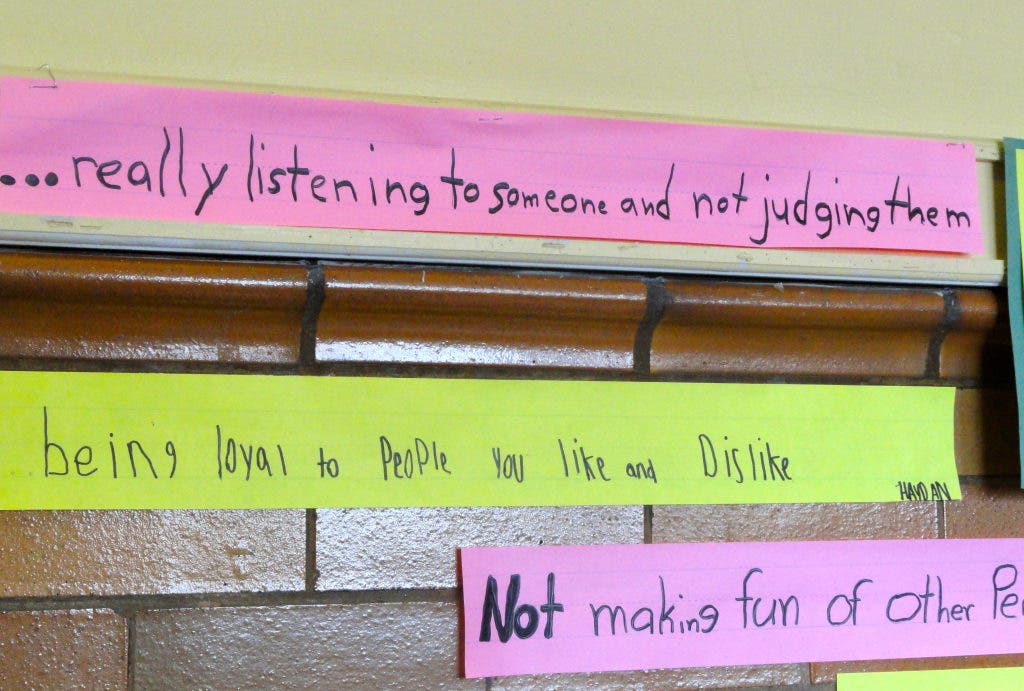 ...really listening to someone and not judging them
being loyal to PeoPle you like and Dislike
HAYDAN
Not making fun of other